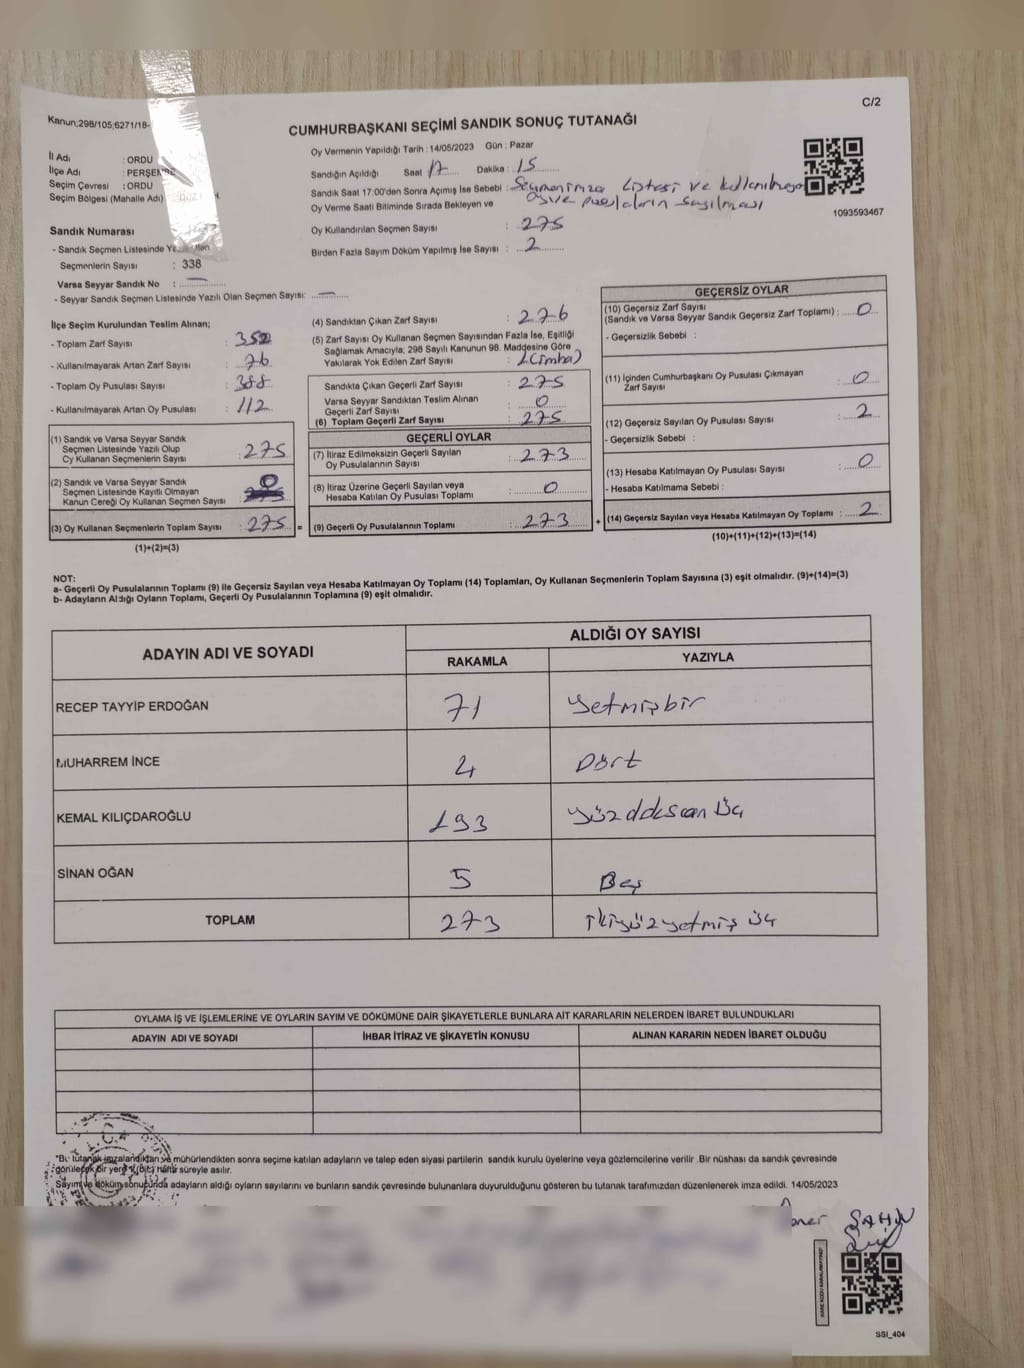 C/2
Kanun;298/105;6271/18-
CUMHURBAŞKANI SEÇİMİ SANDIK SONUÇ TUTANAĞI
İl Adı : ORDU
İlçe Adı : PERŞEMBE
Seçim Çevresi : ORDU
Seçim Bölgesi (Mahalle Adı)
Oy Vermenin Yapıldığı Tarih : 14/05/2023 Gün : Pazar
Sandığın Açıldığı Saat 17 Dakika : 15
Sandık Saat 17:00'den Sonra Açımış İse Sebebi : Seçmen imza Listesi ve kullanılmayan
Oy Verme Saati Bitiminde Sırada Bekleyen ve oy ve pusulaların sayılması
Oy Kullandırılan Seçmen Sayısı : 275
Birden Fazla Sayım Döküm Yapılmış İse Sayısı : 2
1093593467
Sandık Numarası
- Sandık Seçmen Listesinde Yazılı Olan
Seçmenlerin Sayısı : 338
Varsa Seyyar Sandık No : —
- Seyyar Sandık Seçmen Listesinde Yazılı Olan Seçmen Sayısı: —
İlçe Seçim Kurulundan Teslim Alınan;
- Toplam Zarf Sayısı : 352
- Kullanılmayarak Artan Zarf Sayısı : 76
- Toplam Oy Pusulası Sayısı : 388
- Kullanılmayarak Artan Oy Pusulası : 112
(1) Sandık ve Varsa Seyyar Sandık
Seçmen Listesinde Yazılı Olup
Oy Kullanan Seçmenlerin Sayısı : 275
(2) Sandık ve Varsa Seyyar Sandık
Seçmen Listesinde Kayıtlı Olmayan
Kanun Gereği Oy Kullanan Seçmen Sayısı : 0
(3) Oy Kullanan Seçmenlerin Toplam Sayısı : 275 =
(1)+(2)=(3)
(4) Sandıktan Çıkan Zarf Sayısı : 276
(5) Zarf Sayısı Oy Kullanan Seçmen Sayısından Fazla İse, Eşitliği
Sağlamak Amacıyla; 298 Sayılı Kanunun 98. Maddesine Göre
Yakılarak Yok Edilen Zarf Sayısı : 1 (imha)
Sandıkta Çıkan Geçerli Zarf Sayısı : 275
Varsa Seyyar Sandıktan Teslim Alınan
Geçerli Zarf Sayısı : 0
(6) Toplam Geçerli Zarf Sayısı : 275
GEÇERLİ OYLAR
(7) İtiraz Edilmeksizin Geçerli Sayılan
Oy Pusulalarının Sayısı : 273
(8) İtiraz Üzerine Geçerli Sayılan veya
Hesaba Katılan Oy Pusulası Toplamı : 0
(9) Geçerli Oy Pusulalarının Toplamı : 273 +
GEÇERSİZ OYLAR
(10) Geçersiz Zarf Sayısı
(Sandık ve Varsa Seyyar Sandık Geçersiz Zarf Toplamı) : 0
- Geçersizlik Sebebi :
(11) İçinden Cumhurbaşkanı Oy Pusulası Çıkmayan
Zarf Sayısı : 0
(12) Geçersiz Sayılan Oy Pusulası Sayısı : 2
- Geçersizlik Sebebi :
(13) Hesaba Katılmayan Oy Pusulası Sayısı : 0
- Hesaba Katılmama Sebebi :
(14) Geçersiz Sayılan veya Hesaba Katılmayan Oy Toplamı : 2
(10)+(11)+(12)+(13)=(14)
NOT:
a- Geçerli Oy Pusulalarının Toplamı (9) ile Geçersiz Sayılan veya Hesaba Katılmayan Oy Toplamı (14) Toplamları, Oy Kullanan Seçmenlerin Toplam Sayısına (3) eşit olmalıdır. (9)+(14)=(3)
b- Adayların Aldığı Oyların Toplamı, Geçerli Oy Pusulalarının Toplamına (9) eşit olmalıdır.
ADAYIN ADI VE SOYADI ALDIĞI OY SAYISI
RAKAMLA YAZIYLA
RECEP TAYYİP ERDOĞAN 71 Yetmişbir
MUHARREM İNCE 4 Dört
KEMAL KILIÇDAROĞLU 193 Yüzddksan Üç
SİNAN OĞAN 5 Beş
TOPLAM 273 İkiyüzyetmiş üç
OYLAMA İŞ VE İŞLEMLERİNE VE OYLARIN SAYIM VE DÖKÜMÜNE DAİR ŞİKAYETLERLE BUNLARA AİT KARARLARIN NELERDEN İBARET BULUNDUKLARI
ADAYIN ADI VE SOYADI İHBAR İTİRAZ VE ŞİKAYETİN KONUSU ALINAN KARARIN NEDEN İBARET OLDUĞU
*Bu tutanak imzalandıktan ve mühürlendikten sonra seçime katılan adayların ve talep eden siyasi partilerin sandık kurulu üyelerine veya gözlemcilerine verilir .Bir nüshası da sandık çevresinde
görülecek bir yere 1 (Bir) hafta süreyle asılır.
Sayım ve döküm sonucunda adayların aldığı oyların sayılarını ve bunların sandık çevresinde bulunanlara duyurulduğunu gösteren bu tutanak tarafımızdan düzenlenerek imza edildi. 14/05/2023
ŞAHİN
SSI_404